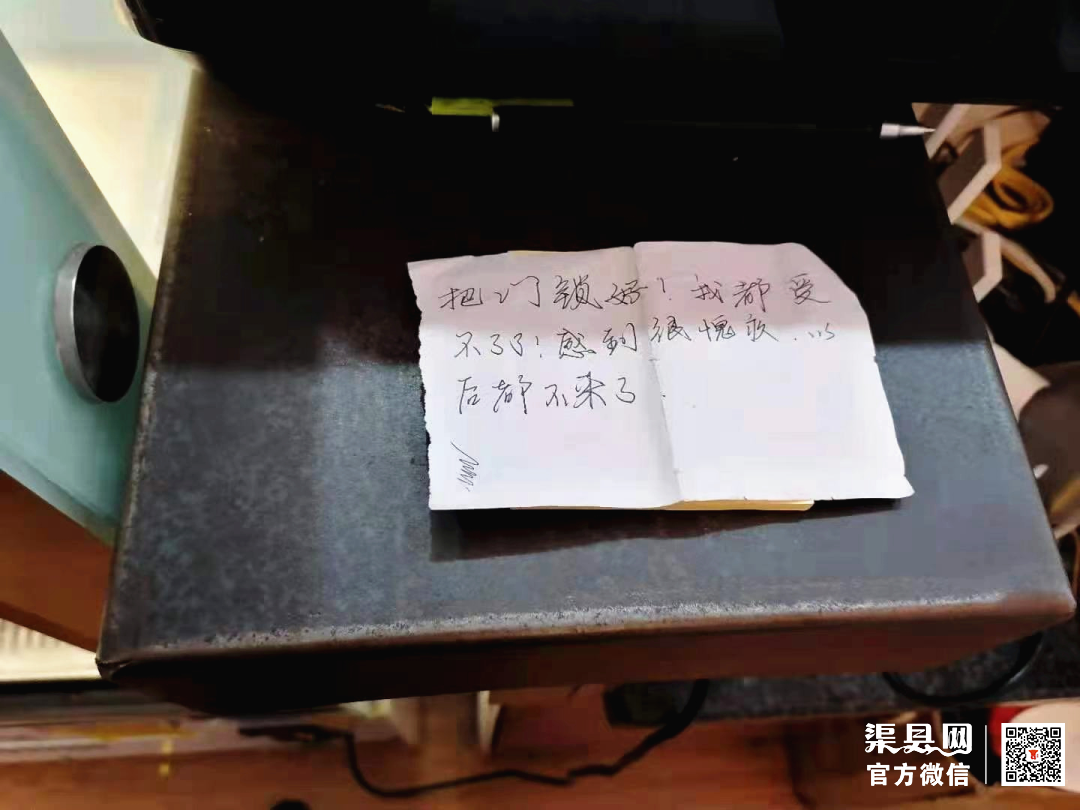 把门锁好！我都受
不了了！感到很愧疚．以
后都不来了．
渠县网
官方微信